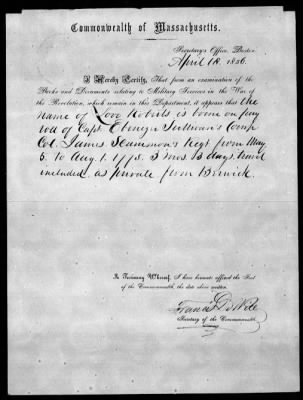 Commonwealth of Massachusetts.
Secretary's Office, Boston
April 18. 1856.
I Hereby Certify, That from an examination of the
Books and Documents relating to Military Services in the War of
the Revolution, which remain in this Department, it appears that the
name of Love Roberts is borne on pay
roll of Capt. Ebenezr Sullivan's Comp
Col. James Scammon's Regt from May
5. to Aug. 1. 1775. 3 mos. days, travel
included. as private from Berwick.
In Testimony Whereof, I have hereunto affixed the Seal
of the Commonwealth, the date above written.
Francis DeWitt
Secretary of the Commonwealth.